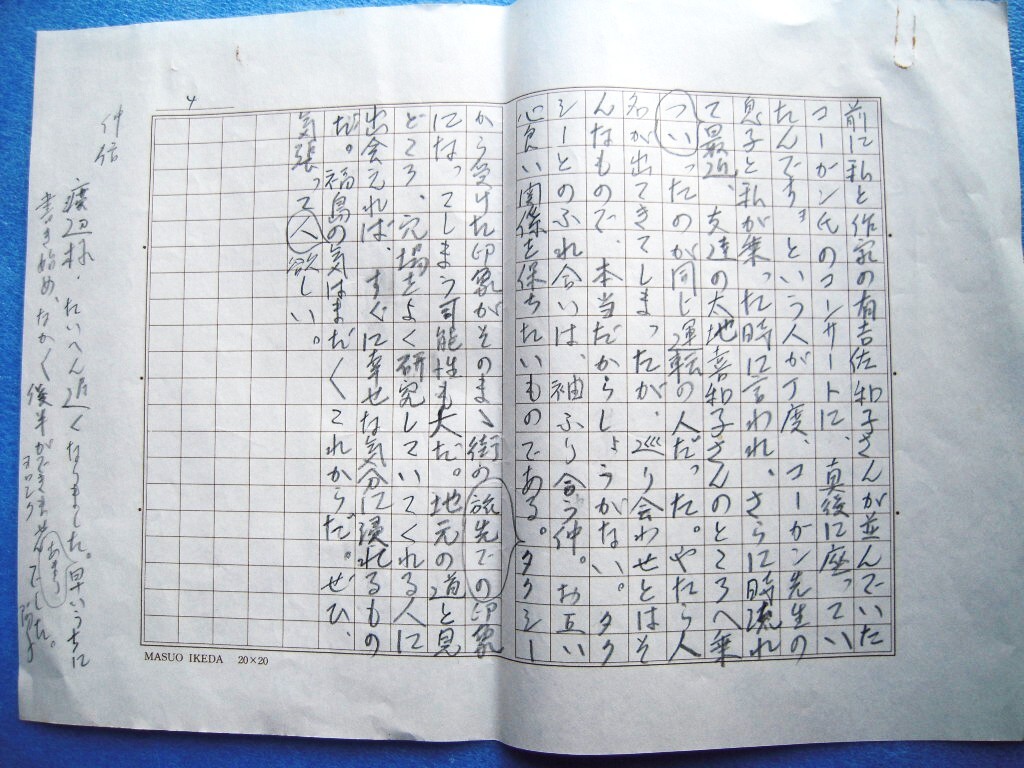 前に私と作家の有吉佐和子さんが並んでいた
コーガン氏のコンサートに、真後に座ってい
たんです〟という人が丁度、コーガン先生の
息子と私が乗った時に言われ、さらに時流れ
て最近、友達の太地喜和子さんのところへ乗
ついったのが同じ運転の人だった。やたら人
名が出てきてしまったが、巡り会わせとはそ
んなもので、本当だからしょうがない。タク
シーとのふれ合いは、袖ふり合う仲。お互い
心良い関係を保ちたいものである。タクシー
から受けた印象がそのまゝ街の旅先での印象
になってしまう可能性も大だ。地元の道と見
どころ、穴場をよく研究していてくれる人に
出会えれば、すぐに幸せな気分に浸れるもの
だ。福島の気はまだくこれからだ。ぜひ、
気張って人欲しい。
4
MASUO IKEDA 20×20
渡辺様、たいへん遅くなりました。早いうちに
書き始め、なかく後半ができませんでした。
あまり
ヨロシク